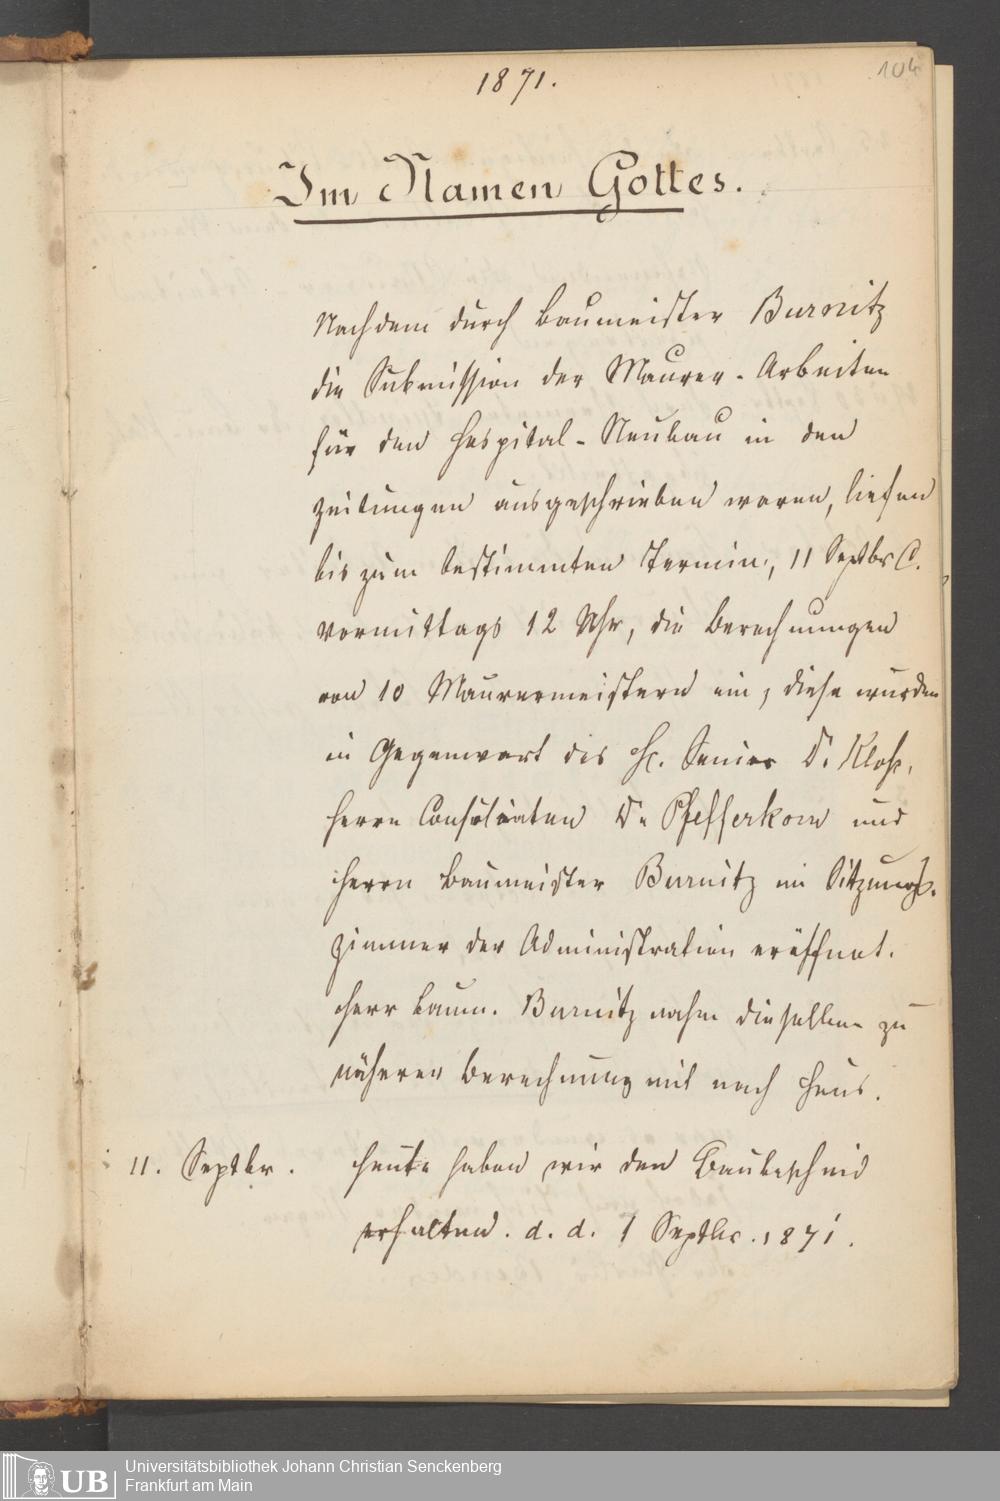 1871.
104
Im Namen Gottes.
Nachdem durch Baumeister Burnitz
die Submission der Maurer-Arbeiten
für den Hospital-Neubau in den
Zeitungen ausgeschrieben waren, liefen
bis zum bestimmten Termin, 11 Septbr C.
Vormittags 12 Uhr, die Berechnungen
von 10 Maurermeistern ein, diese wurden
in Gegenwart des H. Senior Dr Kloß,
Herrn Consulenten Dr Pfefferkorn und
Herrn Baumeister Burnitz im Sitzungs-
zimmer der Administration eröffnet.
Herr Baum. Burnitz nahm dieselben zu
näherer Berechnung mit nach Haus.
11. Septbr. Heute haben wir den Baubescheid
erhalten. d. d. 1 Septbr. 1871.
UB Universitätsbibliothek Johann Christian Senckenberg
Frankfurt am Main